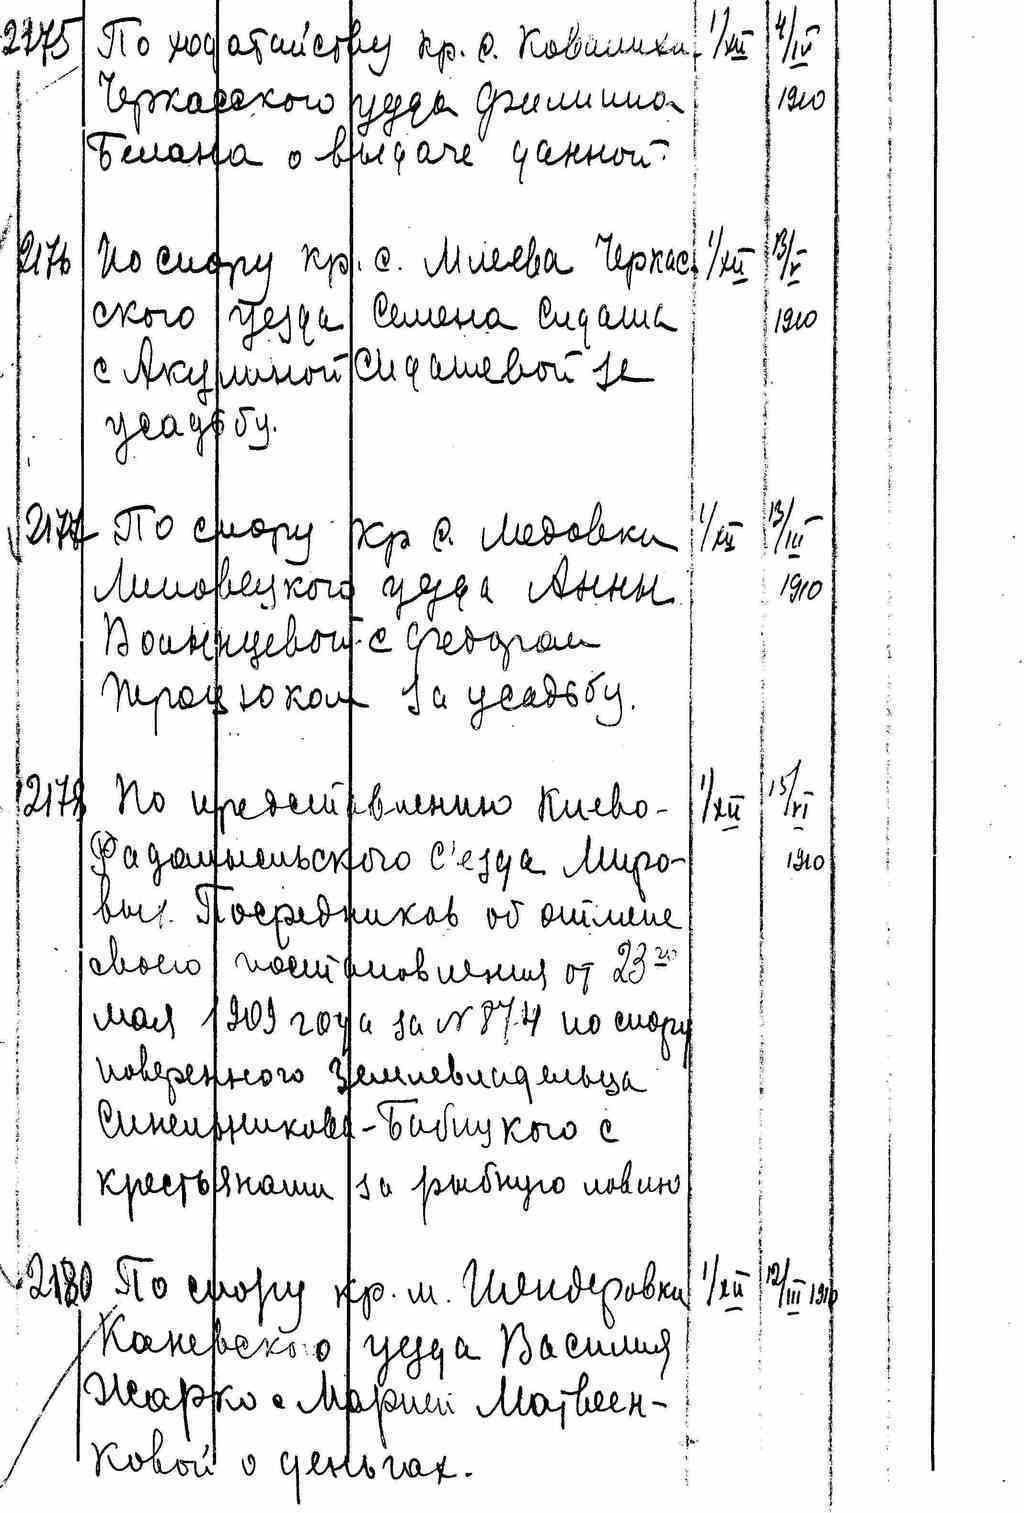 2175 По ходатайству кр. с. Ковалиха 1/XII 4/IV
Черкасского уезда Филиппа 1910
Белана о выдаче данной.
2176 По спору кр. с. Млеева Черкас. 1/XII 13/V
ского уезда Семена Сидаша 1910
с Акулиной Сидашевой за
усадьбу.
2177 По спору кр с. Медовки 1/XII 13/III
Липовецкого уезда Анны 1910
с Федором
Троцюком за усадьбу.
2179 По представлению Киево- 1/XII 15/VI
Радомысльского с'езда Миро- 1910
вых Посредников об отмене
своего постановления от 23го
мая 1909 года за N 874 по спору
поверенного Землевладельца
Синельникова-Бабицкого с
крестьянами за рыбную ловлю
2180 По спору кр. м. Шендеровки 1/XII 12/III 1910
Каневского уезда Василия
Жарко с Марией Матвеен-
ковой о деньгах.